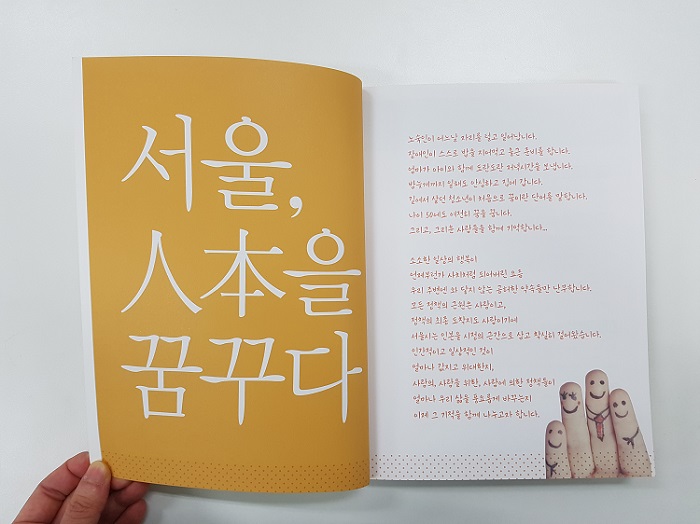 서울,
人本을
꿈꾸다
노숙인이 어느날 자리를 털고 일어납니다.
장애인이 스스로 밥을 지어먹고 출근 준비를 합니다.
엄마가 아이와 함께 도란도란 저녁시간을 보냅니다.
밤늦게까지 일해도 안심하고 집에 갑니다.
길에서 살던 청소년이 처음으로 꿈이란 단어를 말합니다.
나이 50에도 여전히 꿈을 꿉니다.
그리고, 그리운 사람들을 함께 기억합니다..
소소한 일상의 행복이
언제부턴가 사치처럼 되어버린 요즘
우리 주변엔 와 닿지 않는 공허한 약속들만 난무합니다.
모든 정책의 근원은 사람이고,
정책의 최종 도착지도 사람이기에
서울시는 인본을 시정의 근간으로 삼고 열심히 걸어왔습니다.
인간적이고 일상적인 것이
얼마나 값지고 위대한지,
사람의, 사람을 위한, 사람에 의한 정책들이
얼마나 우리 삶을 풍요롭게 바꾸는지
이제 그 기적을 함께 나누고자 합니다.